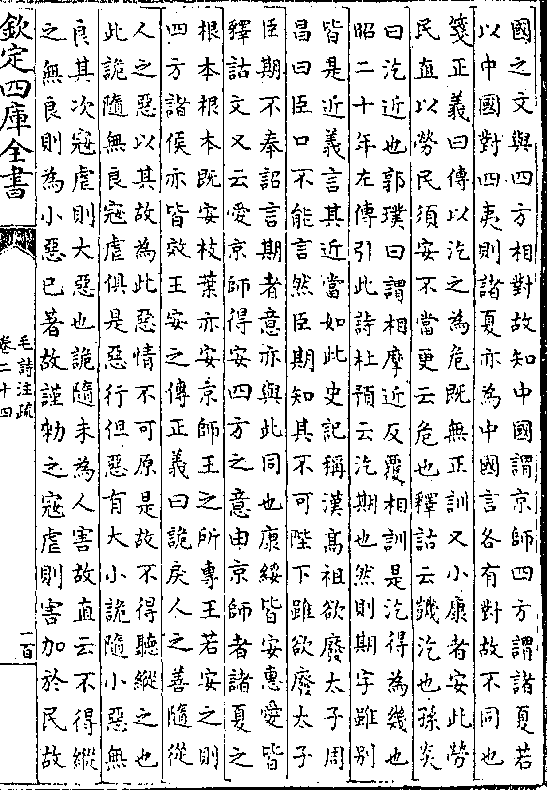 國之文與四方相對故知中國謂京師四方謂諸夏若
以中國對四夷則諸夏亦為中國言各有對故不同也
箋正義曰傳以汔之為危既無正訓又小康者安此勞
民直以勞民須安不當更云危也釋詁云譏汔也孫炎
曰汔近也郭璞曰謂相摩近反覆相訓是汔得為幾也
昭二十年左傳引此詩杜預云汔期也然則期字雖别
皆是近義言其近當如此史記稱漢髙祖欲廢太子周
昌曰臣口不能言然臣期知其不可陛下雖欲廢太子
臣期不奉詔言期者意亦與此同也康綏皆安惠愛皆
釋詁文又云愛京師得安四方之意由京師者諸夏之
根本根本既安枝葉亦安京師王之所專王若安之則
四方諸侯亦皆效王安之傳正義曰詭戾人之善隨從
人之惡以其故為此惡情不可原是故不得聽縱之也
此詭隨無良寇虐俱是惡行但惡有大小詭隨小惡無
良其次寇虐則大惡也詭隨未為人害故直云不得縱
之無良則為小惡已著故謹勑之寇虐則害加於民故
欽定四庫全書
毛詩注疏
卷二十四
一百